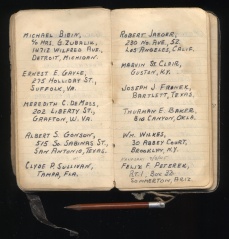 MICHAEL BIBIN,
℅ MRS. G. ZUBALIK,
WILFRED AVE.,
DETROIT, MICHIGAN.
ERNEST E. GAYLE,
275 HOLLIDAY ST.,
SUFFOLK, VA.
MEREDITH C. DEMOSS,
202 LIBERTY ST.,
GRAFTON, W. VA.
ALBERT S. GONSON,
515 SO. SABINAS ST.,
SAN ANTONIO, TEXAS.
CLYDE P. SULLIVAN,
TAMPA, FLA.
ROBERT JAEGER,
280 NO. AVE., 52
LOS ANGELES, CALIF.
MARVIN ST. CLAIR,
GUSTON, KY.
JOSEPH J. FRANEK,
BARTLETT, TEXAS.
THURMAN E. BAKER,
BIG CANYON, OKLA.
WM. WILKES,
30 ABBEY COURT,
BROOKLYN, N.Y.
FELIX F. PETEREK,
RT. 1, BOX 22
SOMMERTON, ARIZ.